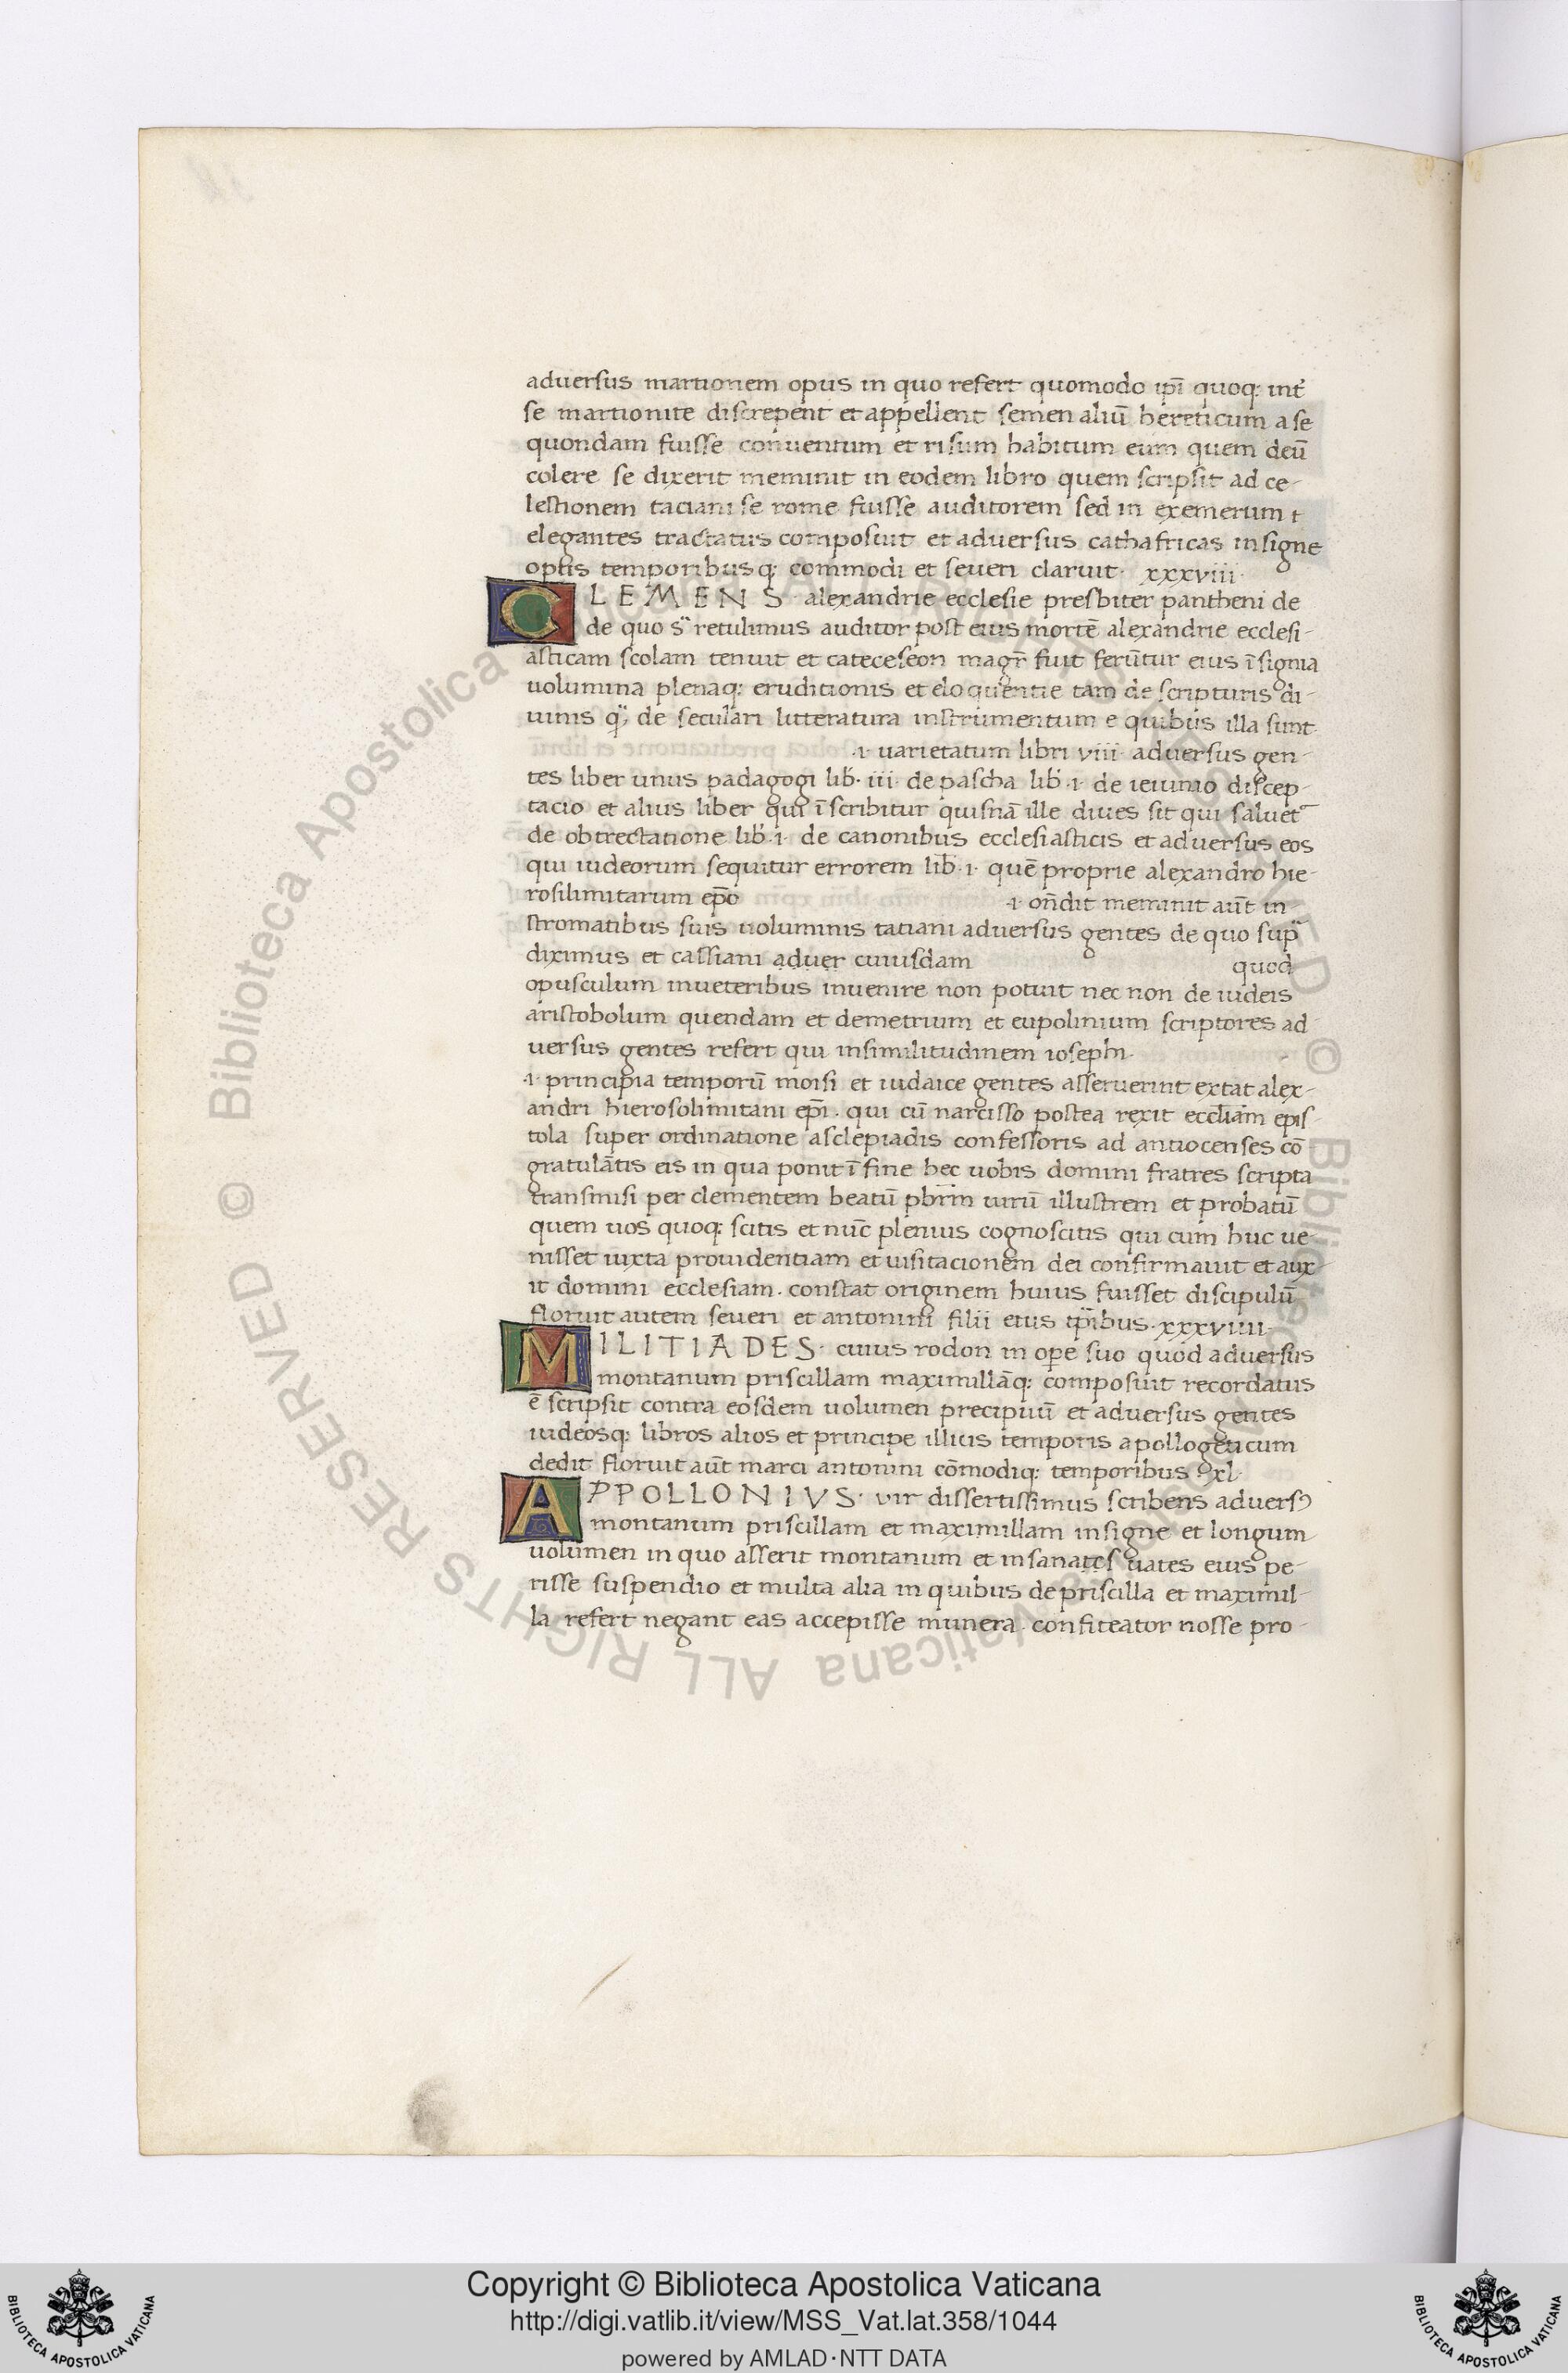 adversus martionem opus in quo refert quomodo ip̄i quoq; int̄
se martionite discrepent et appellent semen aliū hereticum a se
quondam fuisse conuentum et risum habitum eum quem deū
colere se dixerit meminit in eodem libro quem scripsit ad ce-
lestionem taciani se rome fuisse auditorem sed in exemerum t
elegantes tractatus composuit et adversus cathafricas insigne
optis temporibusq; commodi et seueri claruit· xxxviii·
CLEMENS· alexandrie ecclesie presbiter pantheni de
de quo s̈ retulimus auditor post eius mortē alexandrie ecclesi-
asticam scolam tenuit et cateceseon magr̄ fuit ferūtur eius īsignia
uolumina plenaq; eruditionis et eloquentie tam de scripturis di-
uinis q̈; de seculari litteratura instrumentum e quibus illa sunt·
·i· uarietatum libri viii· adversus gen-
tes liber unus padagogi lib̄· iii· de pascha lib̄ ·i· de ieiunio discep-
tacio et alius liber qui īscribitur quisnā ille diues sit qui saluet᷑
de obtrectatione lib̄·i· de canonibus ecclesiasticis et adversus eos
qui iudeorum sequitur errorem lib̄·i· quē proprie alexandro hie-
rosilimitarum ep̄o ·i· on̄dit meminit aūt in
stromatibus suis uoluminis tatiani adversus gentes de quo sup̈
diximus et cassiani aduer cuiusdam quod
opusculum inueteribus inuenire non potuit nec non de iudeis
aristobolum quendam et demetrium et eupolinium scriptores ad-
uersus gentes refert qui insimilitudinem iosephi·
·i· principia temporū moisi et iudaice gentes asseruerint extat alex-
andri hierosolimitani ep̄i· qui cū narcisso postea rexit eccl̄iam epis-
tola super ordinatione asclepiadis confessoris ad antiocenses cō
gratulātis eis in qua ponit ī fine hec uobis domini fratres scripta
transmisi per clementem beatū pb̄rm uirū illustrem et probatū
quem uos quoq; scitis et nūc plenius cognoscitis qui cum huc ue-
nisset iuxta prouidentiam et uisitacionem dei confirmauit et aux-
it domini ecclesiam· constat originem huius fuisset discipulū
floruit autem seueri et antonini filii eius tp̄ibus· xxxviiii·
MILITIADES· cuius rodon in ope suo quod adversus
montanum priscillam maximillāq; composuit recordatus
ē scripsit contra eosdem uolumen precipuū et adversus gentes
iudeosq; libros alios et principe illius temporis apollogeticum
dedit floruit aūt marci antonini cōmodiq; temporibus· xl·
APPOLLONIVS· vir dissertissimus scribens advers᷒
montanum priscillam et maximillam insigne et longum
uolumen in quo asserit montanum et insanates uates eius pe-
risse suspendio et multa alia in quibus de priscilla et maximil-
la refert negant eas accepisse munera· confiteator nosse pro-
© Biblioteca Apostolica Vaticana ALL RIGHTS RESERVED
Copyright © Biblioteca Apostolica Vaticana
http://digi.vatlib.it/view/MSS_Vat.lat.358/1044
powered by AMLAD·NTT DATA
BIBLIOTECA APOSTOLICA VATICANA
BIBLIOTECA APOSTOLICA VATICANA